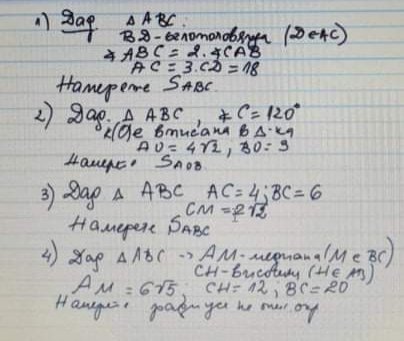 1) Дад △ ABC.
BD-ъглополовяща (D∈AC)
∢ABC = 2.∢CAB
AC = 3.CD = 18
Намерете S ABC.
2) Дад. △ ABC, ∢C = 120°
k(O; е вписана в △-ка
AO = 4√2, BO = 9
Намере S AOB.
3) Дад △ ABC AC = 4; BC = 6
CM = 2√2
Намерете S ABC
4) Дад △ ABC → AM-медиана (M∈BC)
CH-височина (H∈AB)
AM = 6√5; CH = 12; BC = 20
радиуса на опис. окр